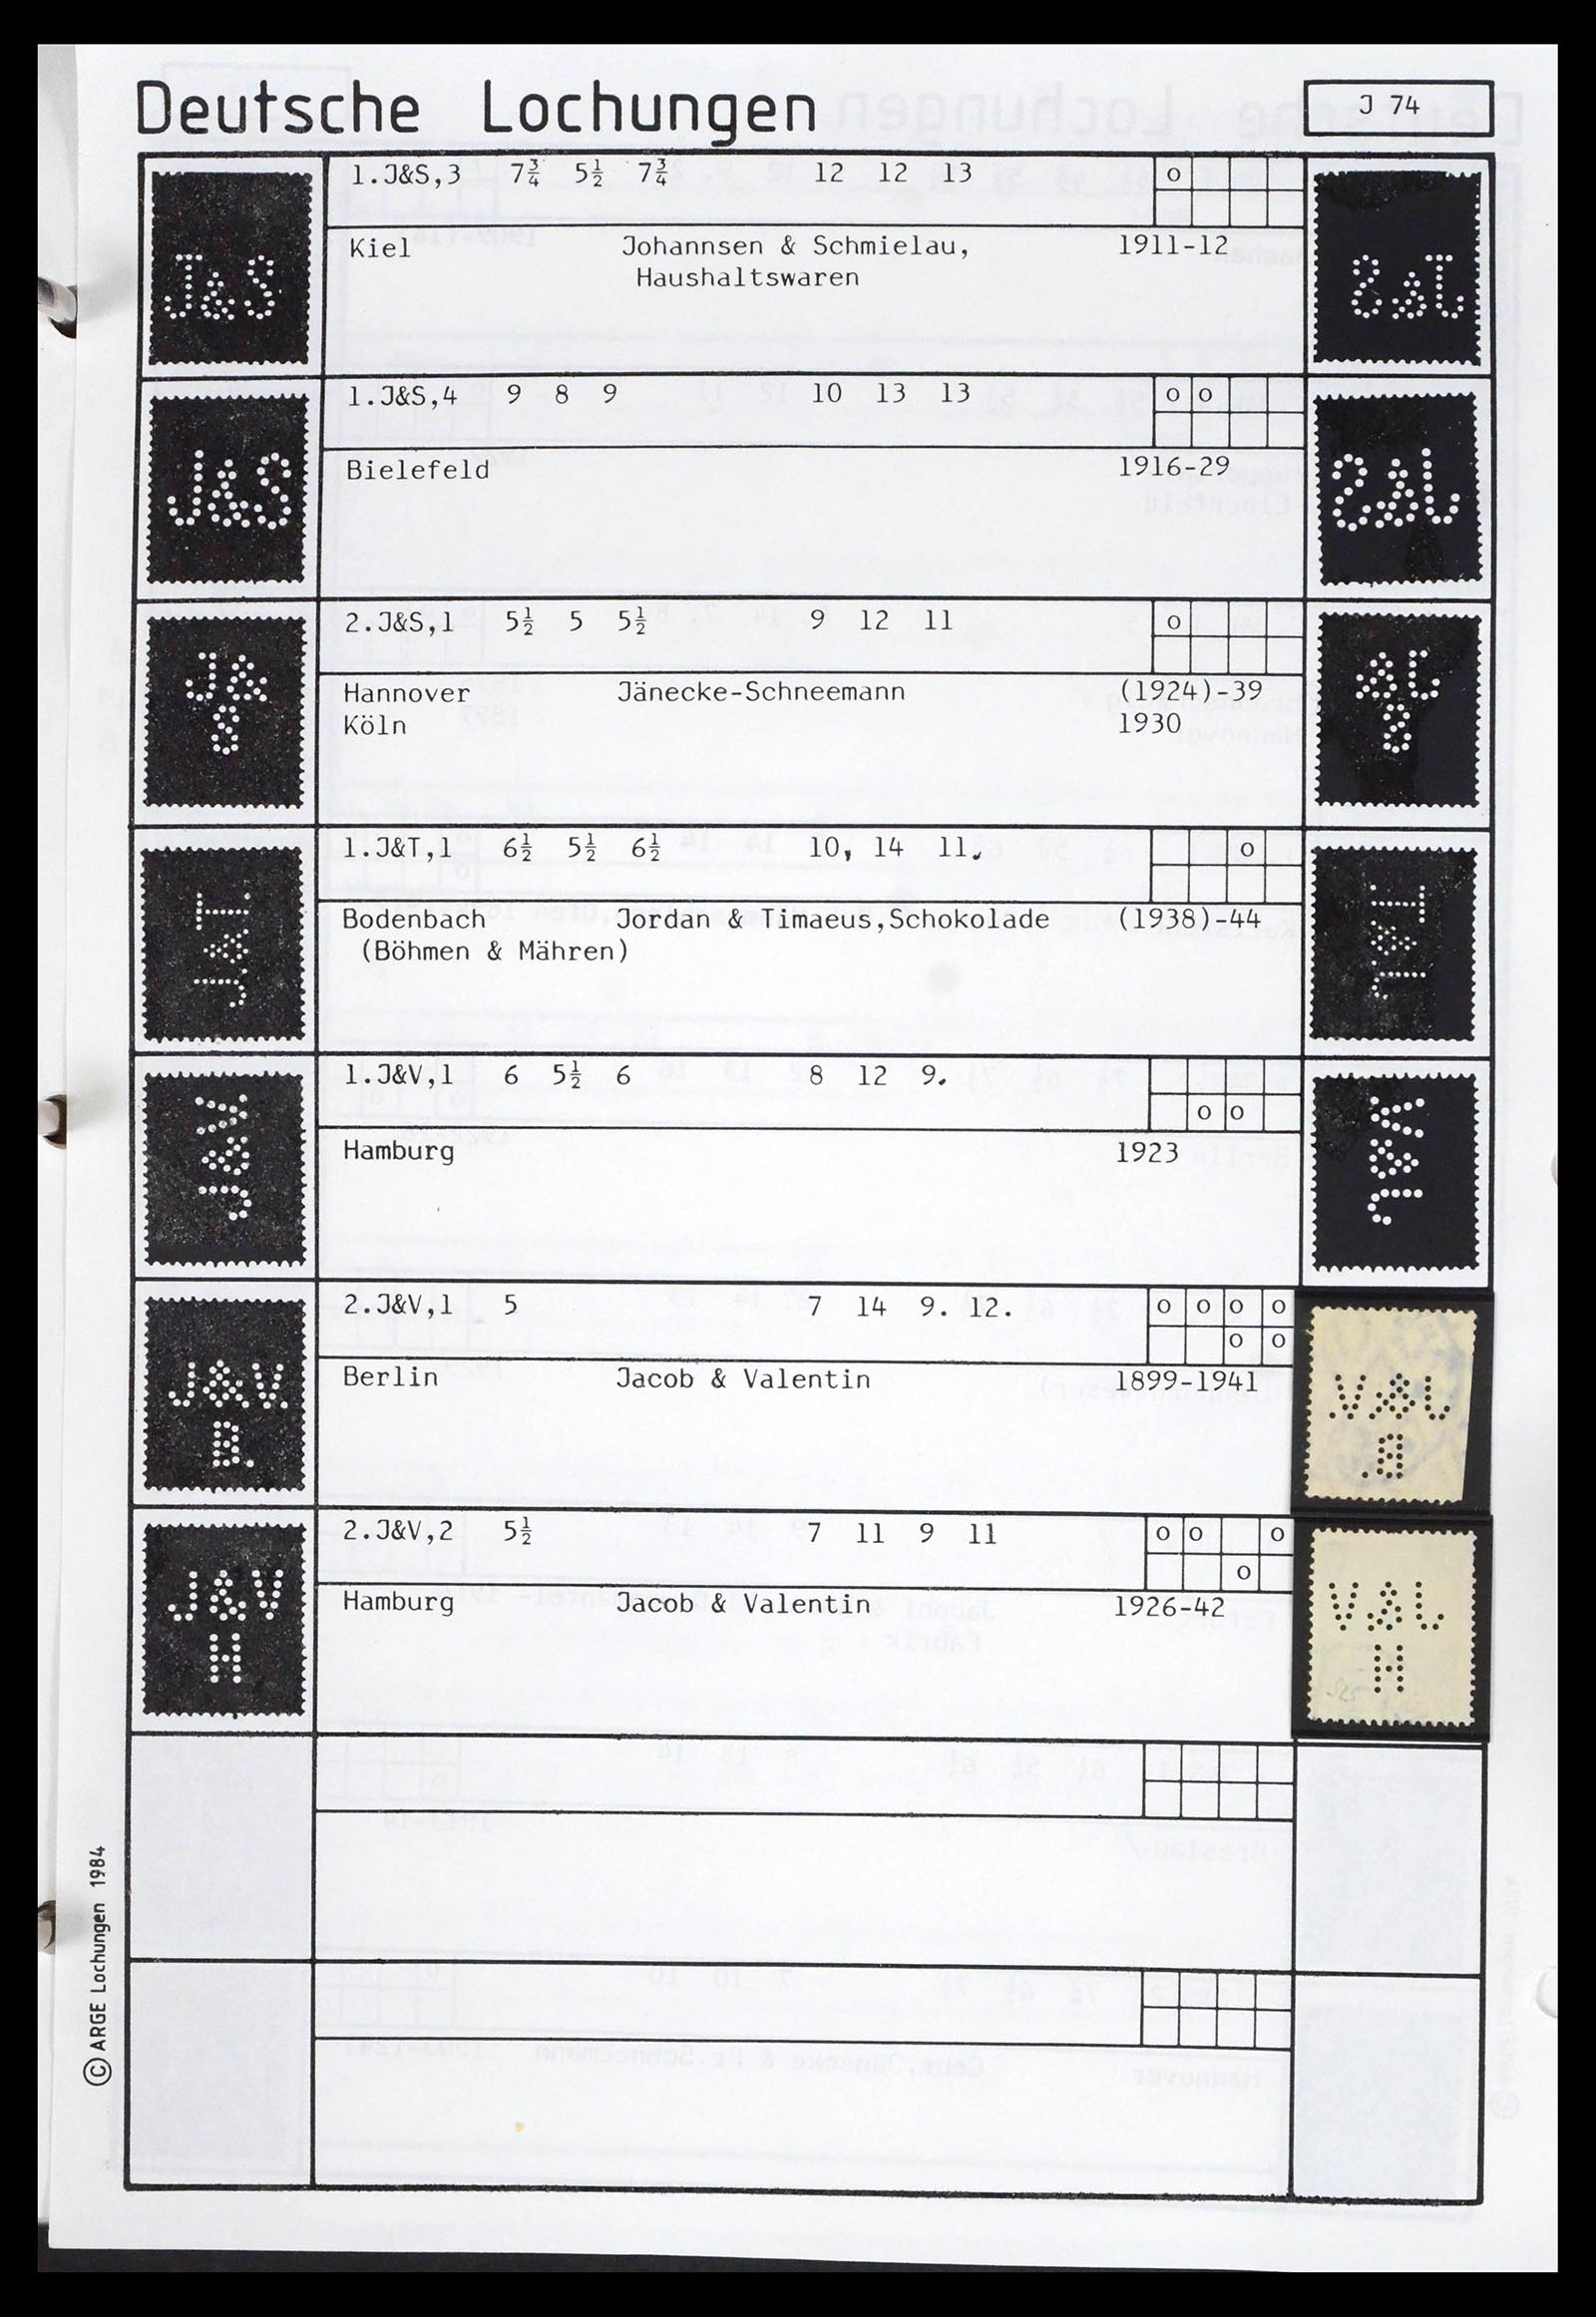 Deutsche Lochungen
J 74
1.J&S,3 7¾ 5½ 7¾ 12 12 13 o
J&S
Kiel Johannsen & Schmielau, 1911-12
Haushaltswaren
1.J&S,4 9 8 9 10 13 13 o o
J&S
Bielefeld 1916-29
2.J&S,1 5½ 5 5½ 9 12 11 o
J&
S
Hannover Jänecke-Schneemann (1924)-39
Köln 1930
1.J&T,1 6½ 5½ 6½ 10, 14 11. o
J&T.
Bodenbach Jordan & Timaeus,Schokolade (1938)-44
(Böhmen & Mähren)
1.J&V,1 6 5½ 6 8 12 9. o o
J&V
Hamburg 1923
2.J&V,1 5 7 14 9. 12. o o o o
o o
J&V
B.
Berlin Jacob & Valentin 1899-1941
2.J&V,2 5½ 7 11 9 11 o o o
o
J&V
H
Hamburg Jacob & Valentin 1926-42
© ARGE Lochungen 1984